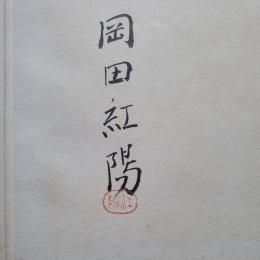 岡田紅陽